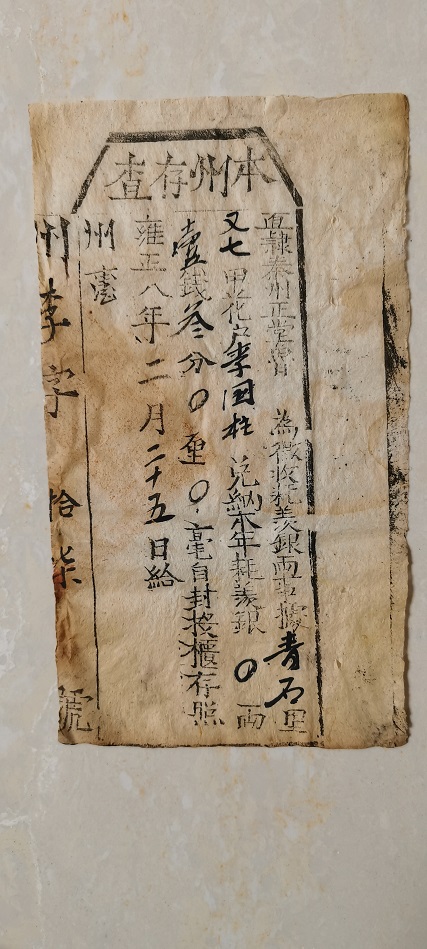 本州存查
直隸秦州正堂曾 為徵收耗羡銀两事據青石里
又七甲花户李国柱 兑納本年耗羡銀 〇 両
壹錢叁分〇厘〇毫自封投櫃存照
雍正八年二月二十五日給
州
州李字拾柒號